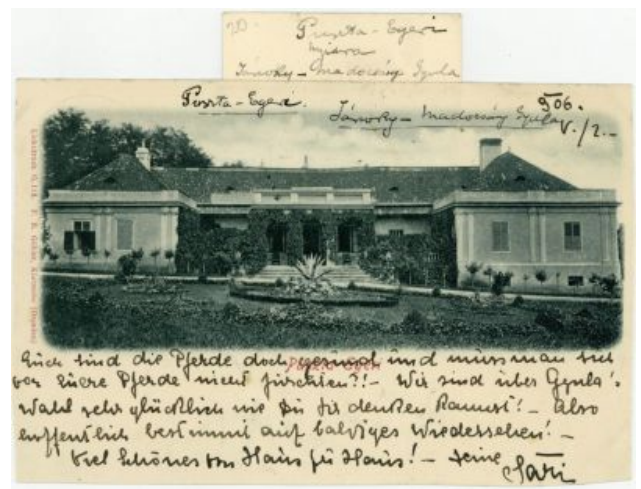 20. Puszta-Egeri
nyiara
Jánoky-Madocsány Gyula
Puszta-Egeri.
906.
Jánoky-Madocsány Gyula
V./2.-
Puszta Egeri
Euch sind die Pferde doch und muss man sich
vor Euere Pferde nicht fürchten?!- Wir sind über Gyula's
Wahl sehr glücklich wie Du Dir denken kannst!- Also
hoffentlich bestimmt auf baldiges Wiedersehen!-
Viel Schönes von Haus zu Haus!- Deine
Sári